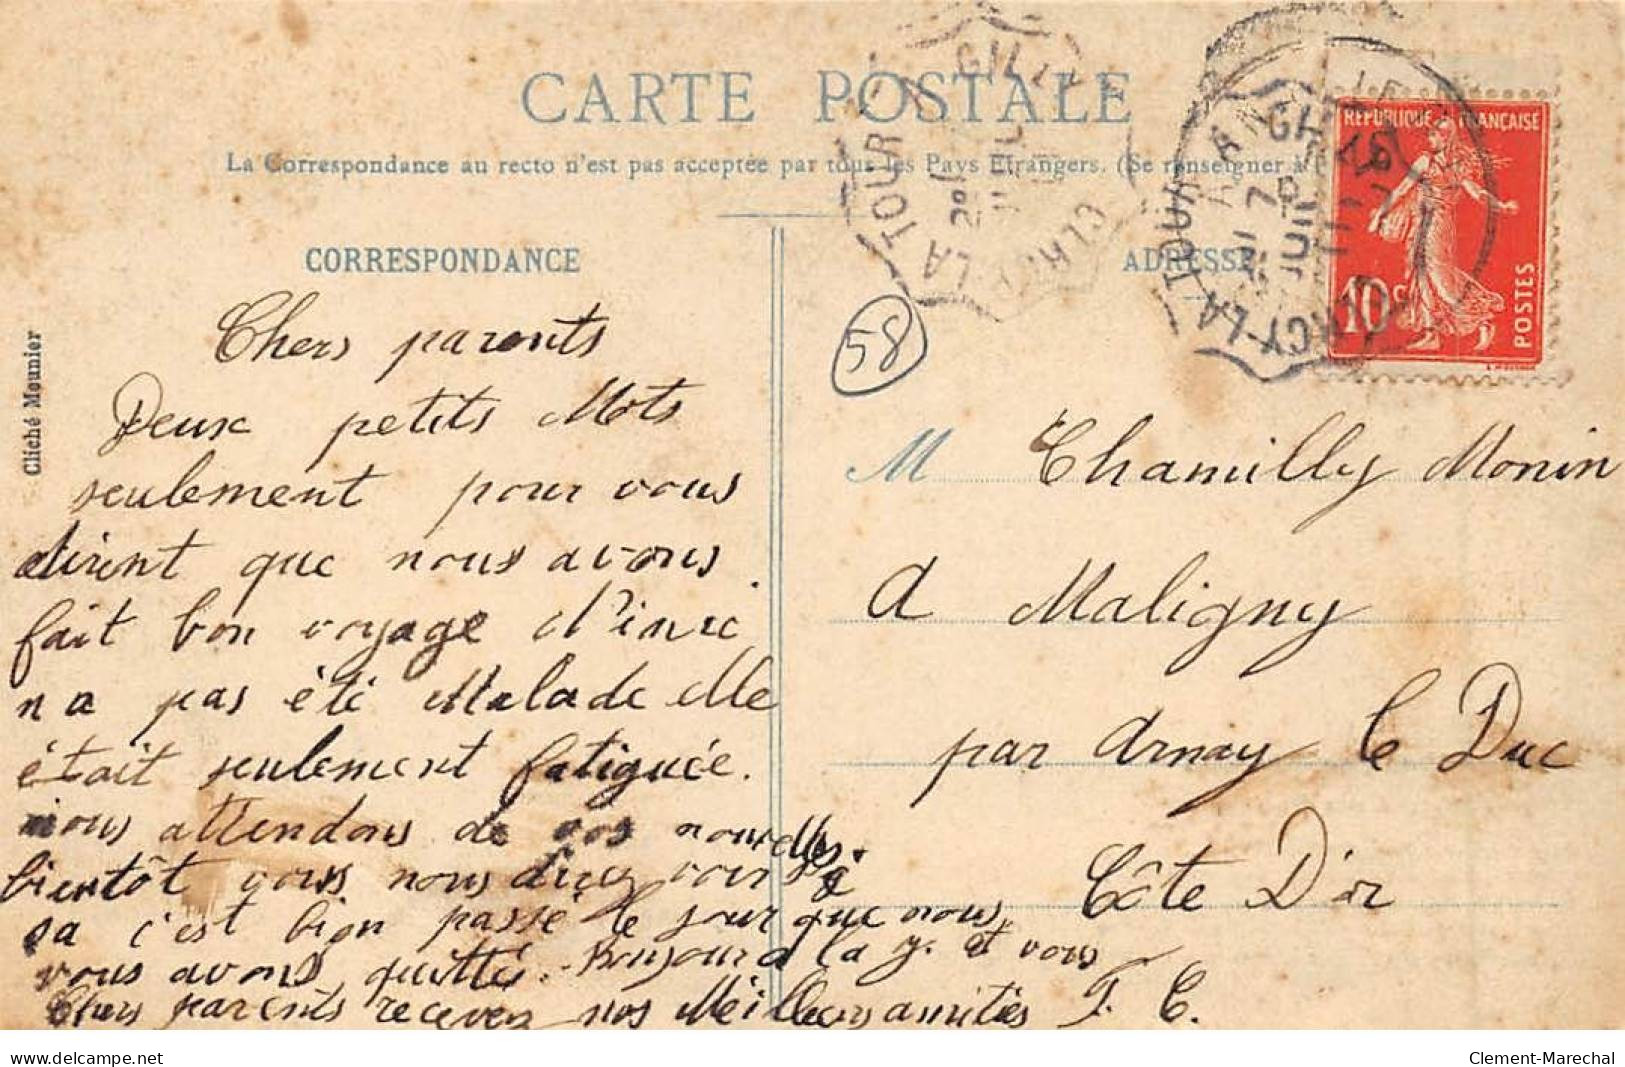 CARTE POSTALE
La Correspondance au recto n'est pas acceptée par tous les Pays Etrangers. (Se renseigner à
CORRESPONDANCE
ADRESSE
REPUBLIQUE FRANÇAISE
10c
POSTES
LA TOUR
LA TOUR
58
Cliché Meunier
Chers parents
Deux petits Mots
seulement pour vous
dirent que nous avons
fait bon voyage
na pas été Malade elle
était seulement fatiguée.
nous attendons de vos nouvelles
bientôt vous nous direz voir si
sa c'est bien passé le jour que nous
vous avons quittés. Bonjour a la g. et vous
Chers parents recevez nos Meilleurs amitiés T. C.
M Chamilly Monin
a Maligny
par Arnay le Duc
Côte D'or
www.delcampe.net
Clement-Marechal